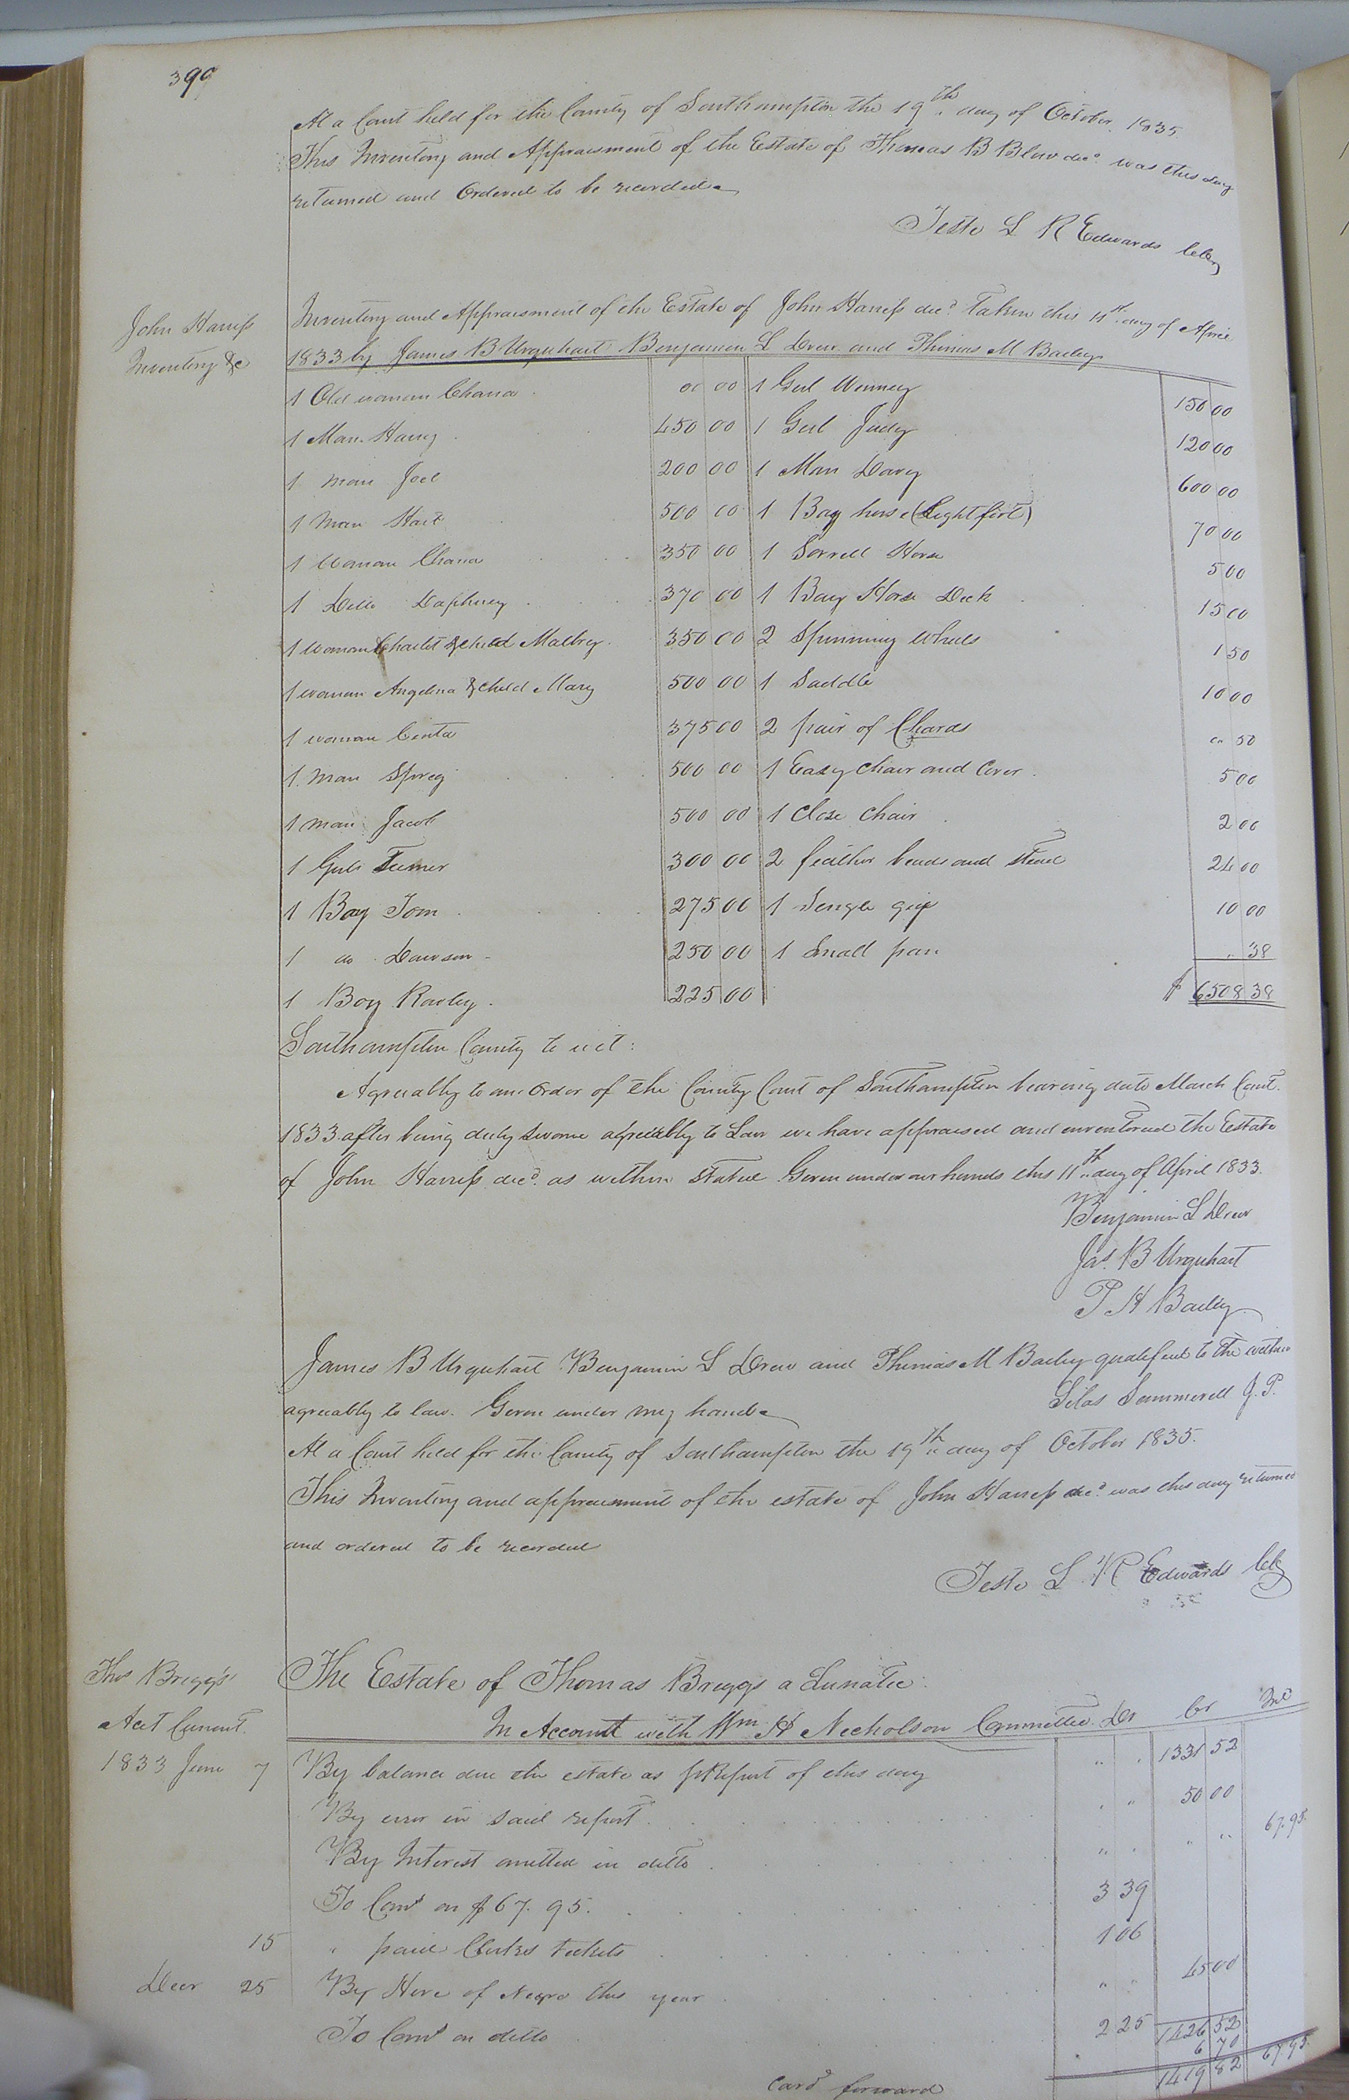 390
At a Court held for the County of Southampton the 19th day of October 1835
This Inventory and Appraisment of the Estate of Thomas B Blow decd was this day
returned and Ordered to be recorded
Teste L R Edwards Clk
John Harriss
Inventory &c
Inventory and Appraisment of the Estate of John Harriss decd Taken this 11th day of April
1833 by James B Urquhart Benjamin L Drew and Thomas M Bailey
1 Old woman Chana 00 00 1 Girl Winney 150 00
1 Man Harry 450 00 1 Girl Judy 120 00
1 man Joel 200 00 1 Man Davy 600 00
1 Man Hart 500 00 1 Bay horse (Lightfirt) 70 00
1 Woman Chana 350 00 1 Sorrell Horse 5 00
1 Ditto Daphney 370 00 1 Bay Horse Dick 15 00
1 Woman Charlet & child Malbry 350 00 2 Spinning Wheels 1 50
1 woman Angelina & child Mary 500 00 1 Saddle 10 00
1 woman Centa 375 00 2 pair of Chards " 50
1 man Sprig 500 00 1 Easy Chair and Cover 5 00
1 man Jacob 500 00 1 Close Chair 2 00
1 Girl 300 00 2 feather beads and Stead 24 00
1 Boy Tom 275 00 1 Single gig 10 00
1 do Dawson 250 00 1 Small pan " 38
1 Boy Rawley 225 00 $ 6508 38
Southampton County to wit:
Agreeably to an Order of the County Court of Southampton bearing date March Court
1833 after being duly sworne agreeably to Law we have appraised and inventoried the Estate
of John Harriss decd as within Stated Given under our hands this 11th day of April 1833.
Benjamin L Drew
Jas. B Urquhart
T H Bailey
James B Urquhart Benjamin L Drew and Thomas M Bailey qualified to the within
agreeably to law. Given under my hand
Silas Summerell J. P.
At a Court held for the County of Southampton the 19th day of October 1835.
This Inventory and appraisment of the estate of John Harriss decd was this day returned
and ordered to be recorded
Teste L R Edwards Clk
Thos Briggs
Act Current
The Estate of Thomas Briggs a Lunatic
In Account with Wm H Nicholson Committee Dr Cr Int
1833 June 7 By balance due the estate as pr Report of this day " " 1331 52
By error in said report " " 50 00
By Interest omitted in ditto " " " " 67.95
To Coms on $67.95. 3 39
15 " paid Clerks tickets 1 06
Decr 25 By Hire of Negro this year " " 45 00
To Coms on ditto 2 25 1426 52
6 70
Card forward 1419 82 67.95